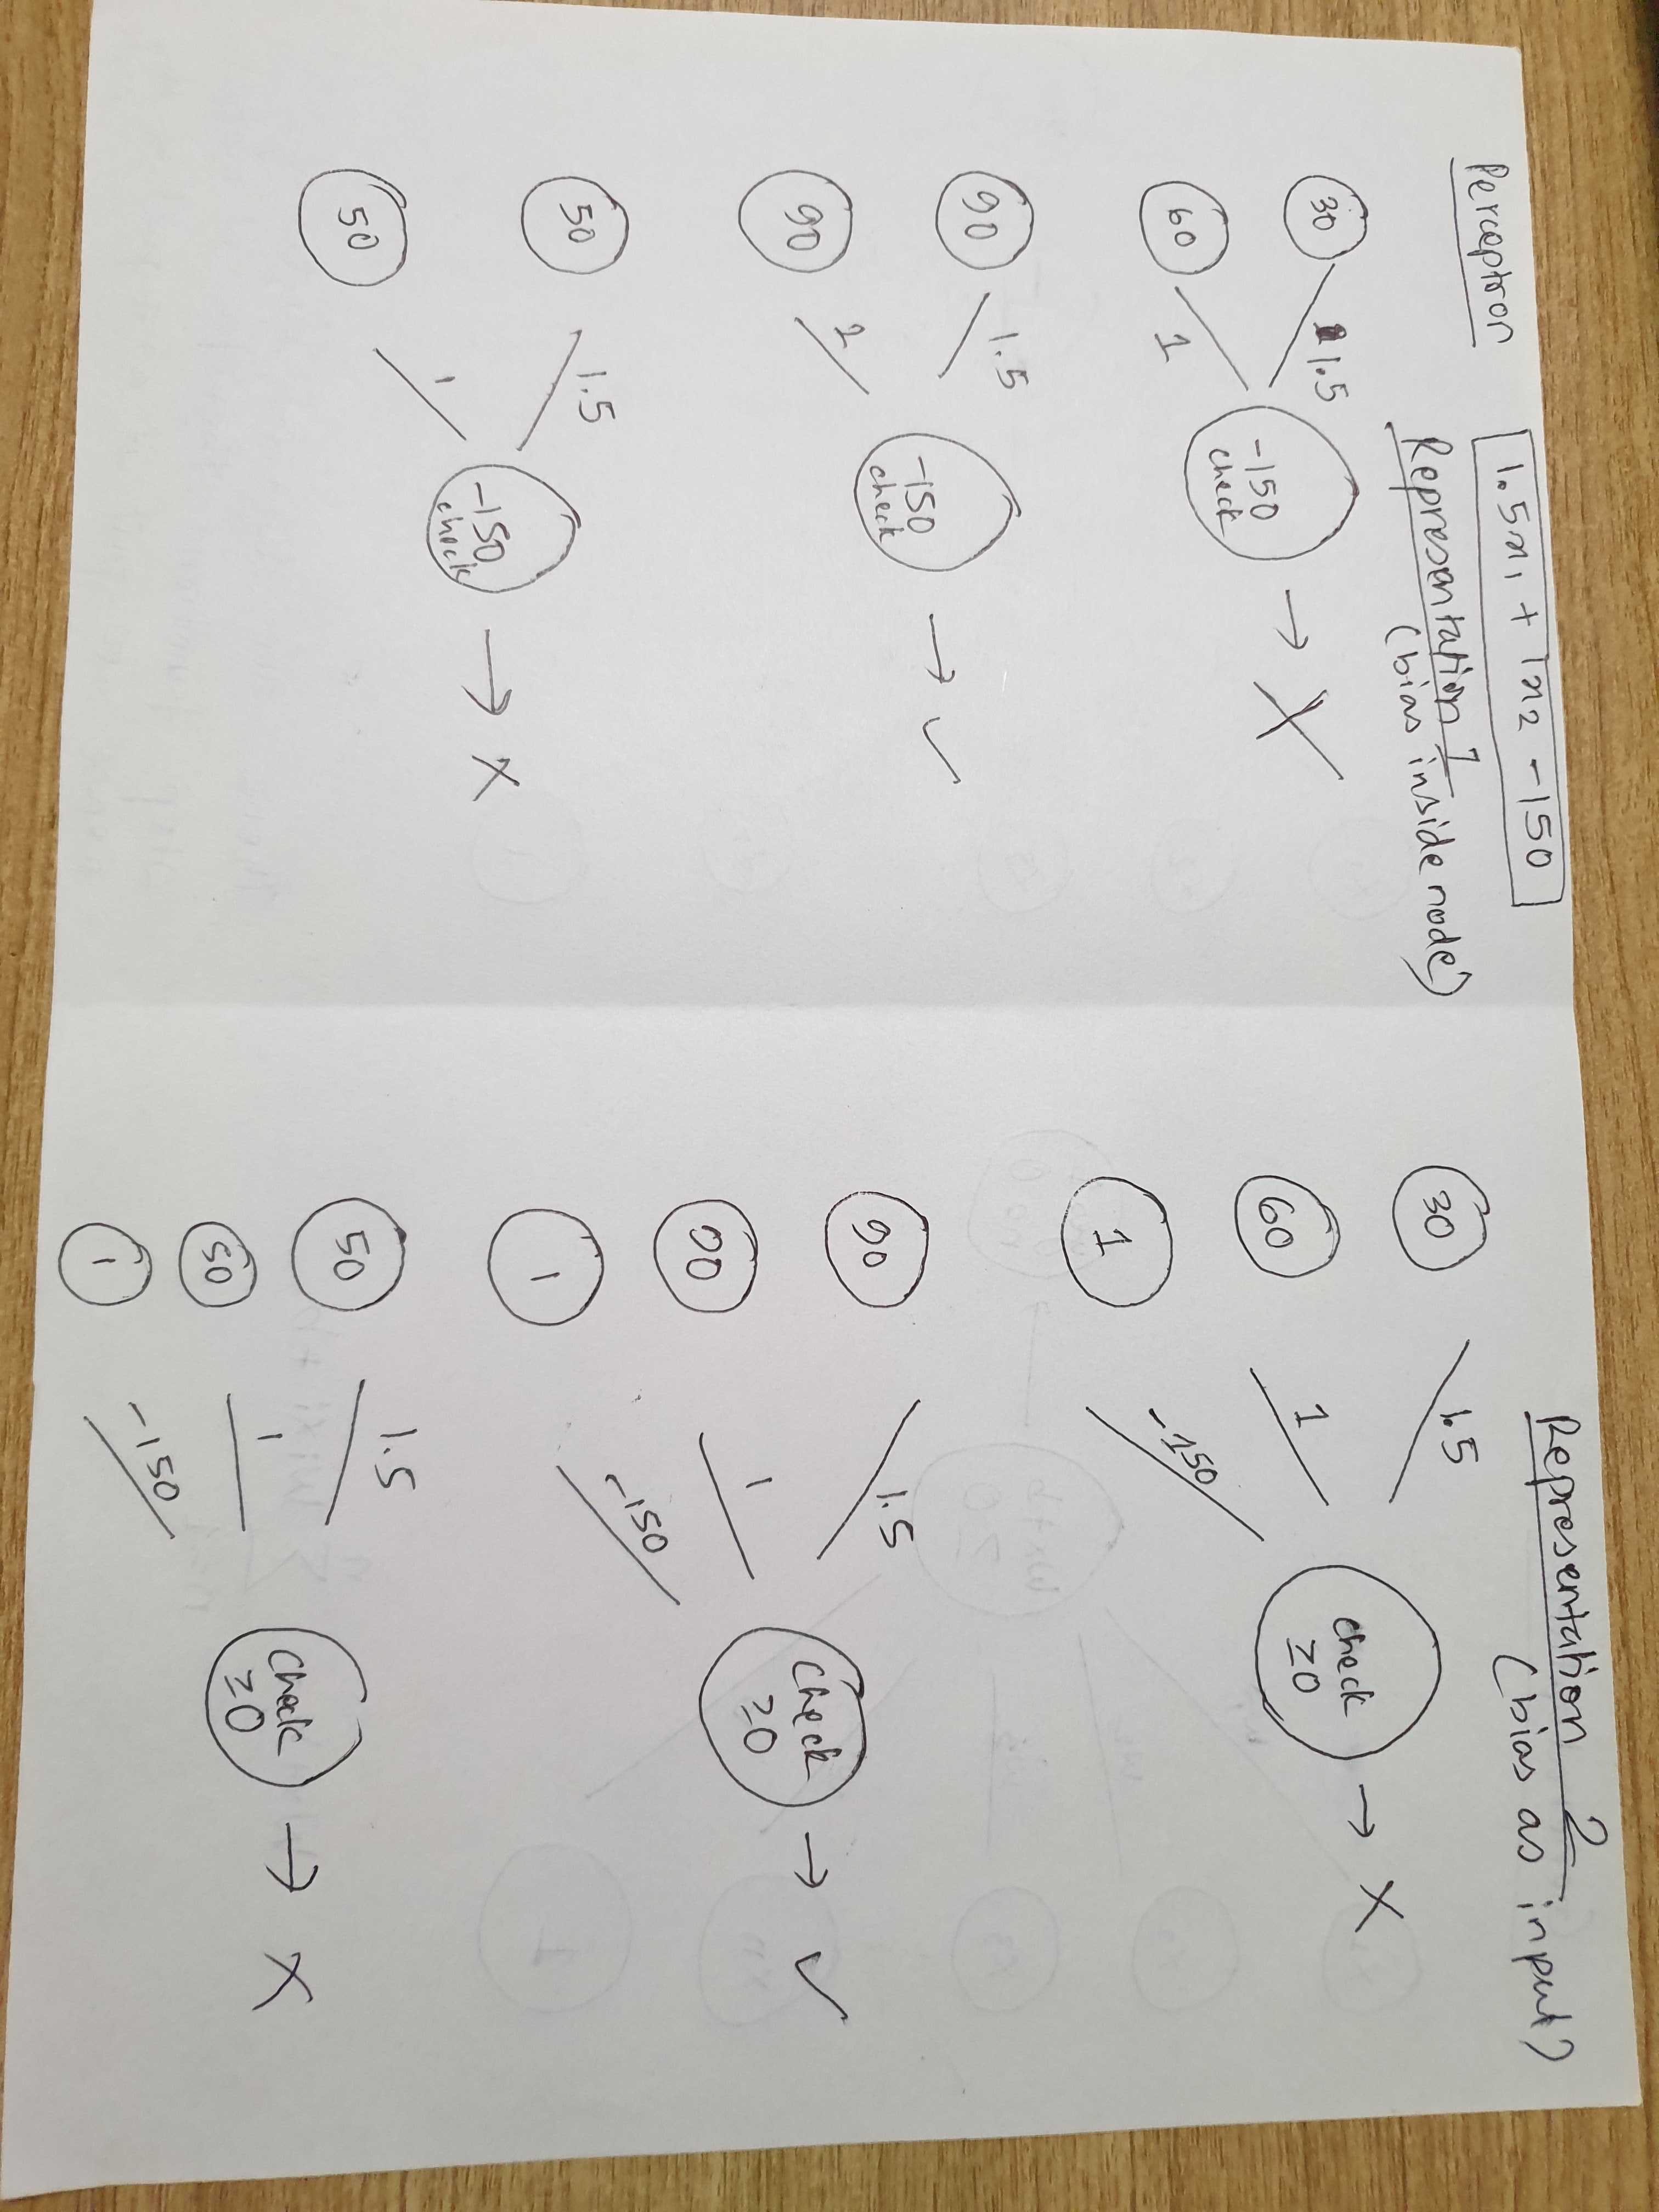 Perceptron
1.5x₁ + 1x₂ - 150
Representation 1
(bias inside node)
30
1.5
60
1
-150
check
→ X
90
1.5
90
1
-150
check
→ ✓
50
1.5
50
1
-150
check
→ X
Representation 2
(bias as input)
30
1.5
60
1
1
-150
check
≥0
→ X
90
1.5
90
1
1
-150
check
≥0
→ ✓
50
1.5
50
1
1
-150
check
≥0
→ X